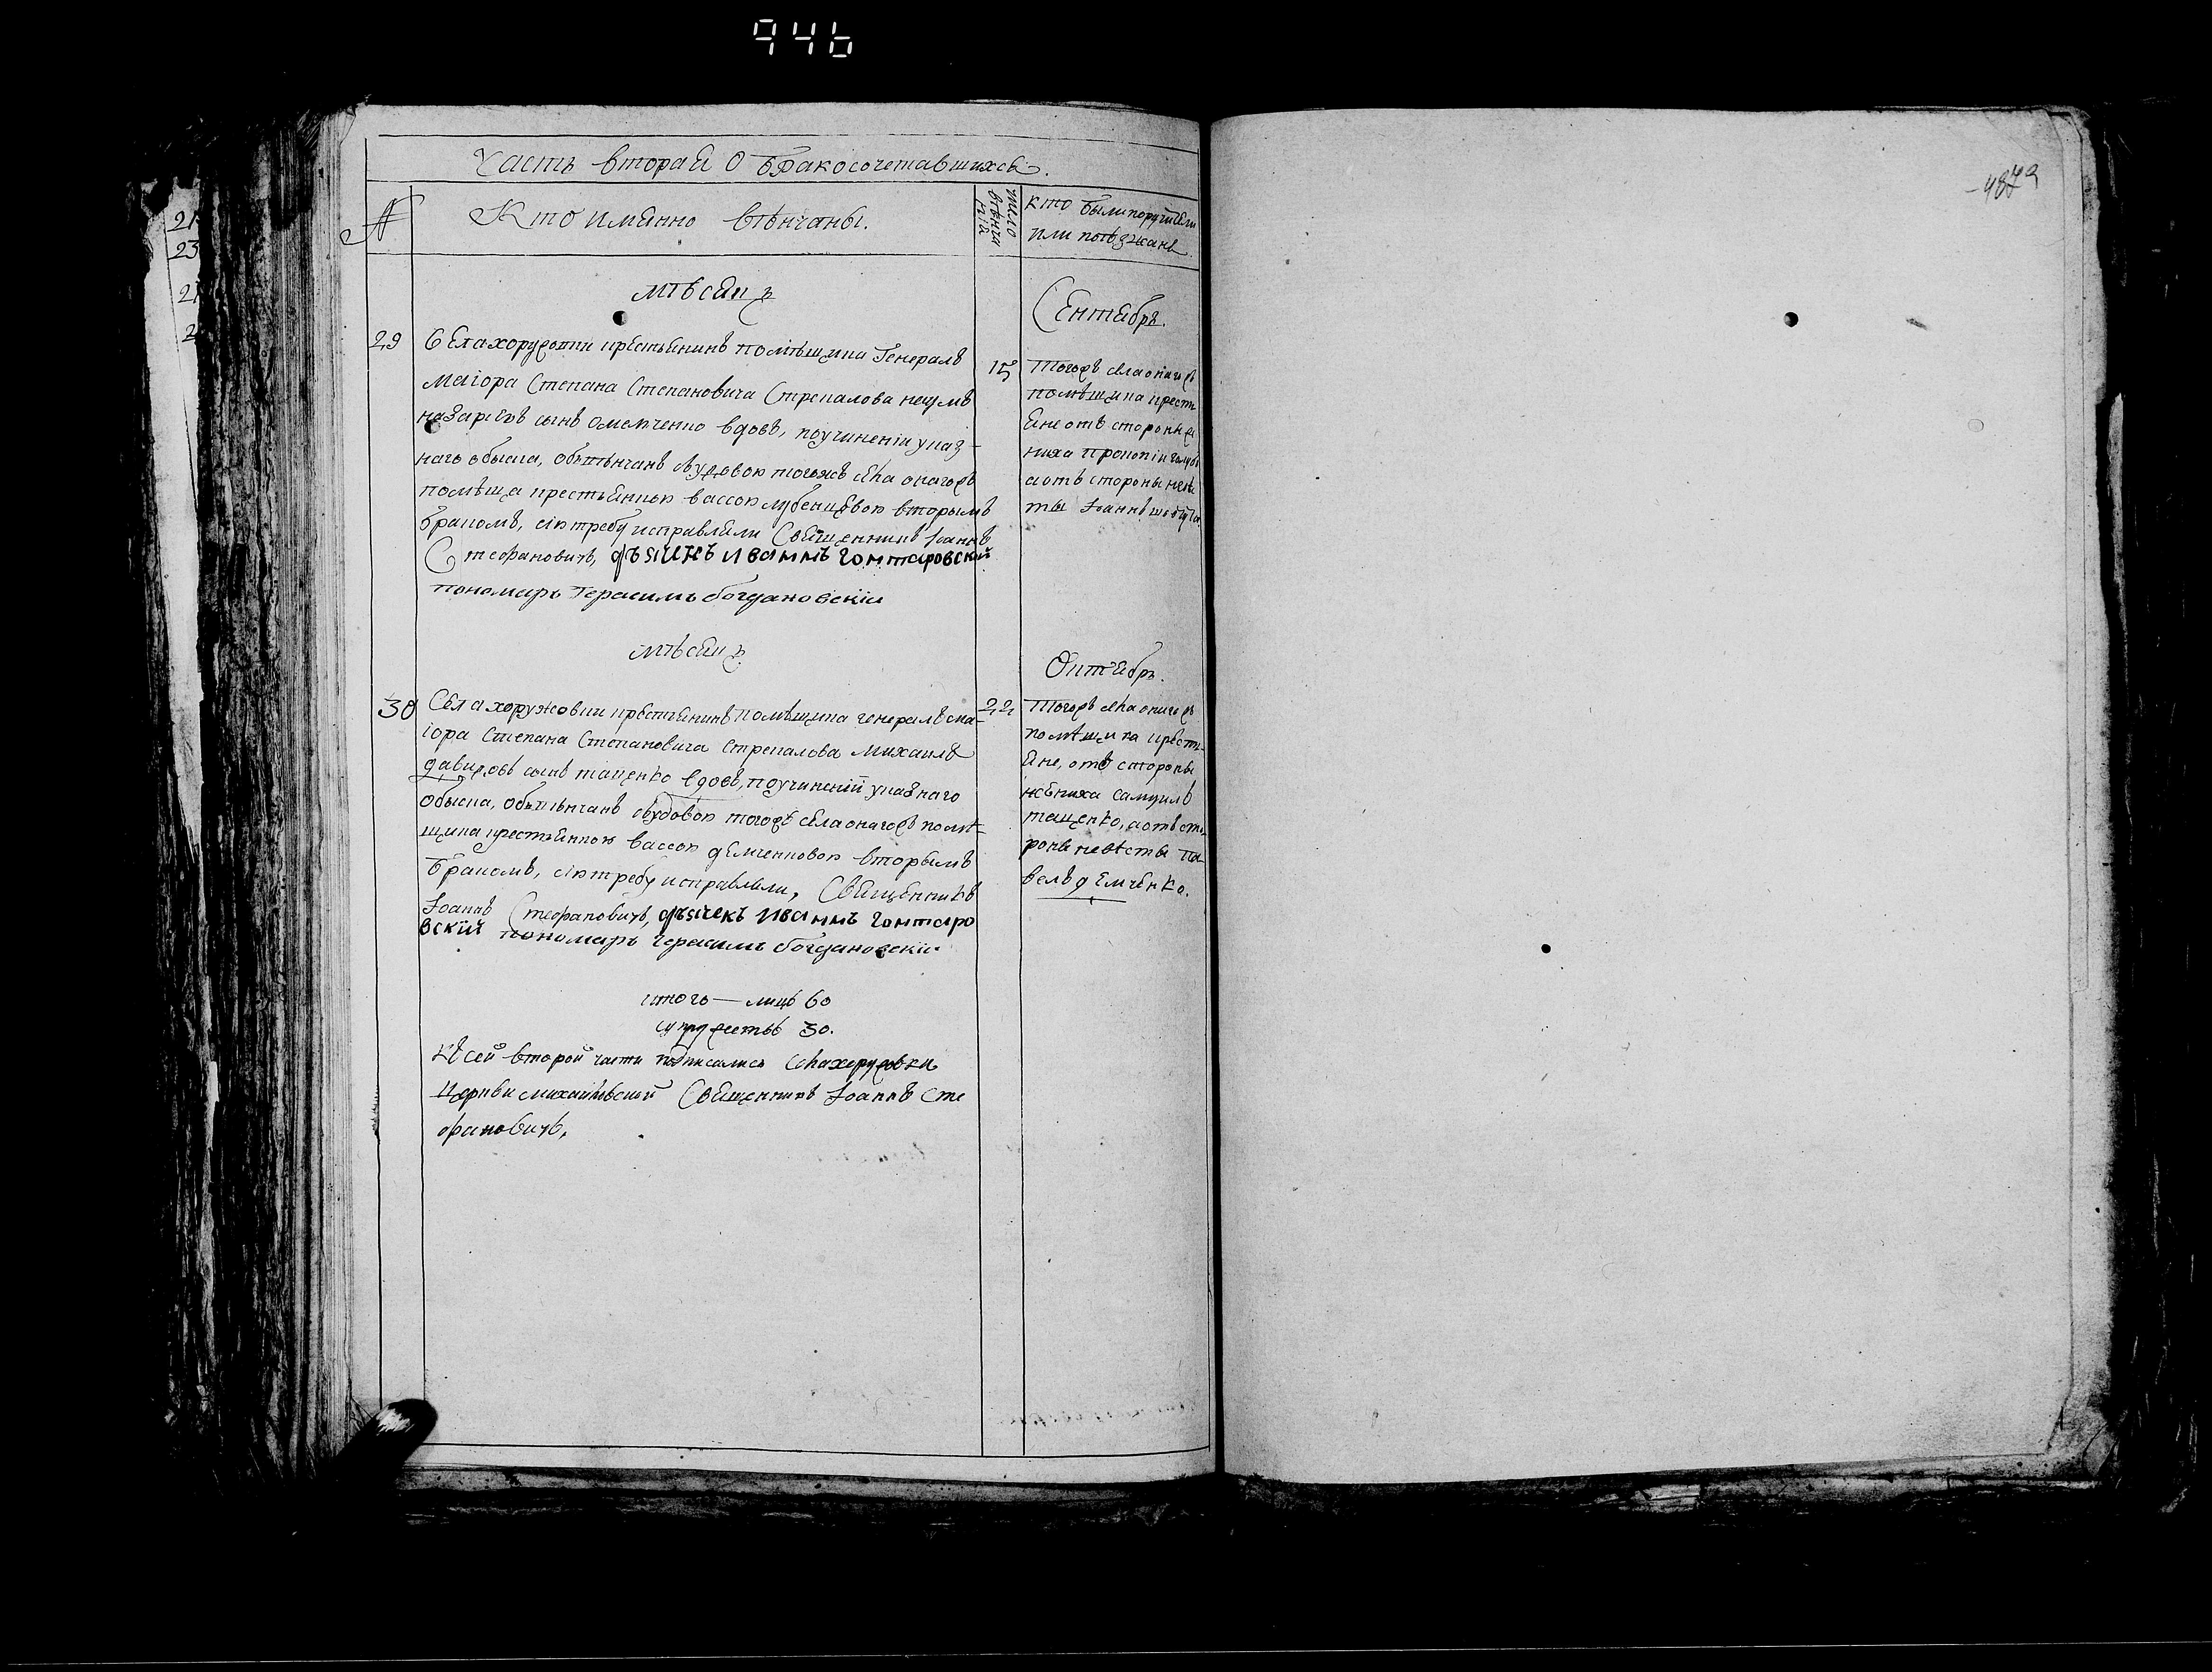 946
Часть вторая О бракосочетавшихся.
№
Кто имянно вѣнчаны.
число вѣнчанія
кто были поручители
или поѣзжанѣ
мѣсяцъ
Сентябрь.
29
Села хоружовки крестьянинъ помѣщика Генералъ
Маіора Степана Степановича Стрекалова
назаріевъ сынъ омелченко вдовъ, поучиненіи указ-
наго обыска, обвѣнчанъ вдовою тогожъ села оногожъ
помѣща крестьянкою вассою вторымъ
бракомъ, сію требу исправляли Священникъ Іоаннъ
Стефановичъ, дьячекъ Иваннъ Гонтаровскій
пономарь Герасимъ Богдановскій
15
Тогожъ села оногожъ
помѣщика кресть
яне отъ стороны же
ниха Прокопій
а отъ стороны невѣ
сты Іоаннъ
мѣсяцъ
Октябрь.
30
Села хоружовки крестьянинъ помѣщика генералъ ма-
іора Степана Степановича Стрекалова Михаилъ
давидовъ сынъ тащенко вдовъ, поучиненій указнаго
обыска, обвѣнчанъ вдовою тогожъ села оногожъ помѣ-
щика крестьянкою вассою демченковою вторымъ
бракомъ, сію требу исправляли, Священникъ
Іоаннъ Стефановичъ, дьячекъ Иваннъ Гонтаро
вскій пономарь Герасимъ Богдановскій
22
Тогожъ села оногожъ
помѣщика кресть-
яне, отъ стороны
жениха Самуилъ
тащенко, а отъ сто-
роны невѣсты Па-
велъ демченко.
итого — лицъ 60
супружествъ 30.
Къ сей второй части подписались Села хоружовки
Церкви михайловской Священникъ Іоаннъ Сте
фановичъ,
21
23